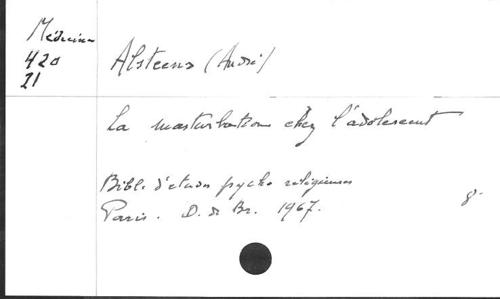 Médecine
420
21
Alsteens (André)
La masturbation chez l'adolescent
Bibl. d'études psycho religieuses
Paris. D. de Br. 1967.
8°